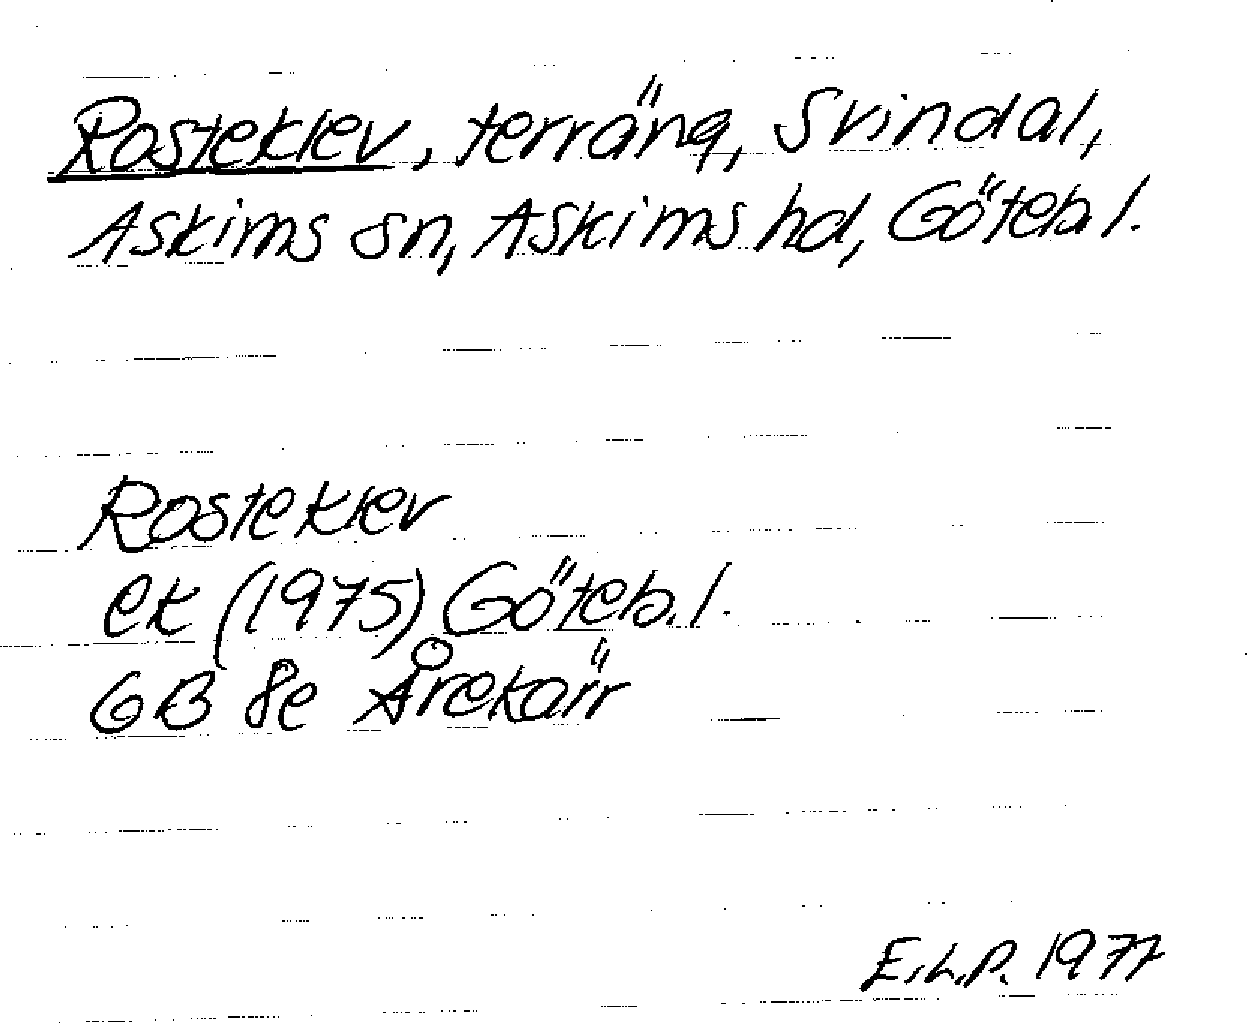 Rosteklev, terräng, Svindal,
Askims sn, Askims hd, Göteb l.
Rosteklev
ek (1975) Göteb. l.
GB 8e Årekärr
E.L.P. 1977